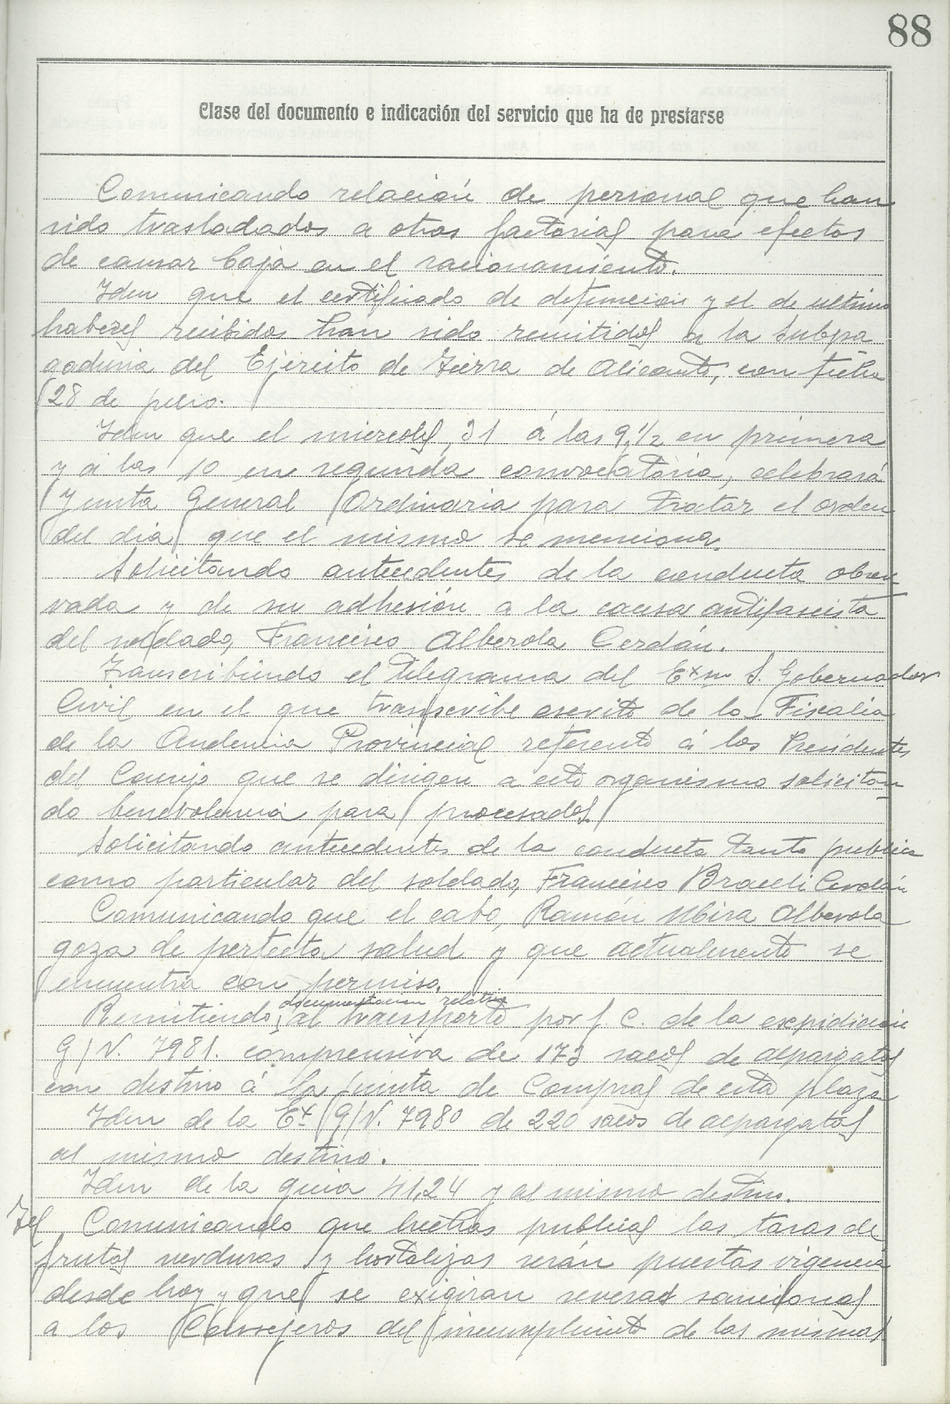 88
Clase del documento e indicación del servicio que ha de prestarse
Comunicando relación de personal que han
sido trasladados a otras factorias para efectos
de causar baja en el racionamiento.
Idem que el certificado de defuncion y el de ultimos
haberes recibidos han sido remitidos a la Subpa
gaduria del Ejercito de Tierra de Alicante, con fecha
28 de julio.
Idem que el miercoles, 31 á las 9,1/2 en primera
y a las 10 en segunda convocatoria, celebrará
Junta General Ordinaria para tratar el orden
del dia que el mismo se menciona.
Solicitando antecedentes de la conducta obser
vada y de su adhesión a la causa antifascista
del soldado, Francisco Alberola Cerdán.
Transcribiendo el telegrama del Exmo S. Gobernador
Civil en el que transcribe escrito de la Fiscalia
de la Audencia Provincial referente á los Presidentes
del Consejo que se dirigen a este organismo solicitan
do benevolencia para procesados
Solicitando antecedentes de la conducta tanto publica
como particular del soldado, Francisco Cerdán
Comunicando que el cabo, Ramón Mira Alberola
goza de perfecta salud y que actualmente se
encuentra con permiso.
documentacion relativa
Remitiendo, al transporte por f. c. de la expidicion
G/V. 7981. comprensiva de 173 sacos de alpargatas
con destino á la Junta de Compras de esta plaza
Idem de la Ex. G/V. 7980 de 220 sacos de alpargatas
al mismo destino.
Idem de la guia 4124 y al mismo destino.
Tel Comunicando que hechas publicas las tasas de
frutas verduras y hortalizas serán puestas vigencia
desde hoy y que se exigiran severas sanciones
a los Consejeros del incumpliento de las mismas